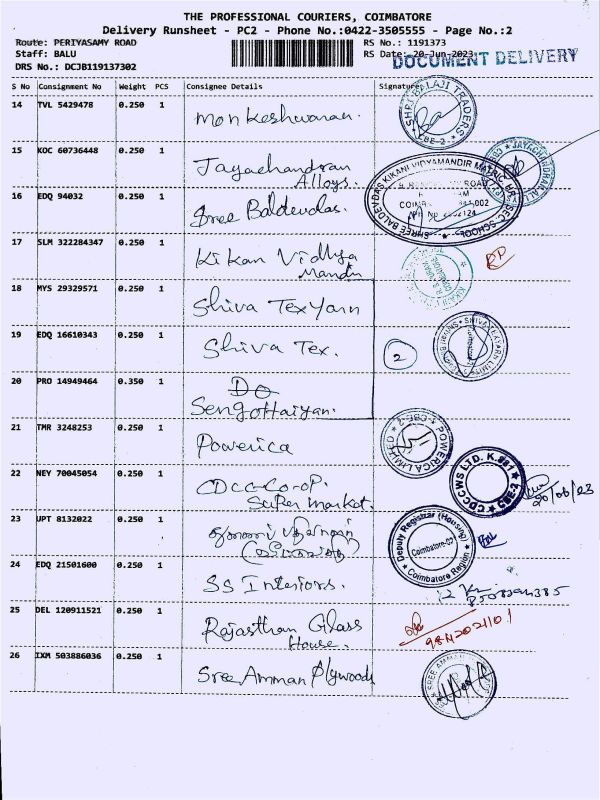 THE PROFESSIONAL COURIERS, COIMBATORE
Delivery Runsheet - PC2 - Phone No.:0422-3505555 - Page No.:2
Route: PERIYASAMY ROAD RS No.: 1191373
Staff: BALU RS Date: 20-Jun-2023
DOCUMENT DELIVERY
DRS No.: DCJB119137302
S No Consignment No Weight PCS Consignee Details Signature
14 TVL 5429478 0.250 1
SHRI BALAJI TRADERS CBE-2
15 KOC 60736448 0.250 1 Jayachandran
Alloys.
16 EDQ 94032 0.250 1 Sree Baldevdas.
SHREE BALDEVDAS KIKANI VIDYAMANDIR MATRIC HR SEC SCHOOL
17 SLM 322284347 0.250 1 Kikan Vidhya
Mandir
18 MYS 29329571 0.250 1 Shiva Tex Yarn
19 EDQ 16610343 0.250 1 Shiva Tex.
2
20 PRO 14949464 0.350 1 Do
Sengottaiyan.
21 TMR 3248253 0.250 1 Powerica
POWERICA LIMITED CBE-2
22 NEY 70045054 0.250 1 CDCC Co-op.
Super Market.
CDCCWS LTD. K.881 CBE-2
20/06/23
23 UPT 8132022 0.250 1
Deputy Registrar (Housing)
Coimbatore Region
24 EDQ 21501600 0.250 1 SS Interiors.
25 DEL 120911521 0.250 1 Rajasthan Glass
House.
26 IXM 503886036 0.250 1 Sree Amman Plywoods